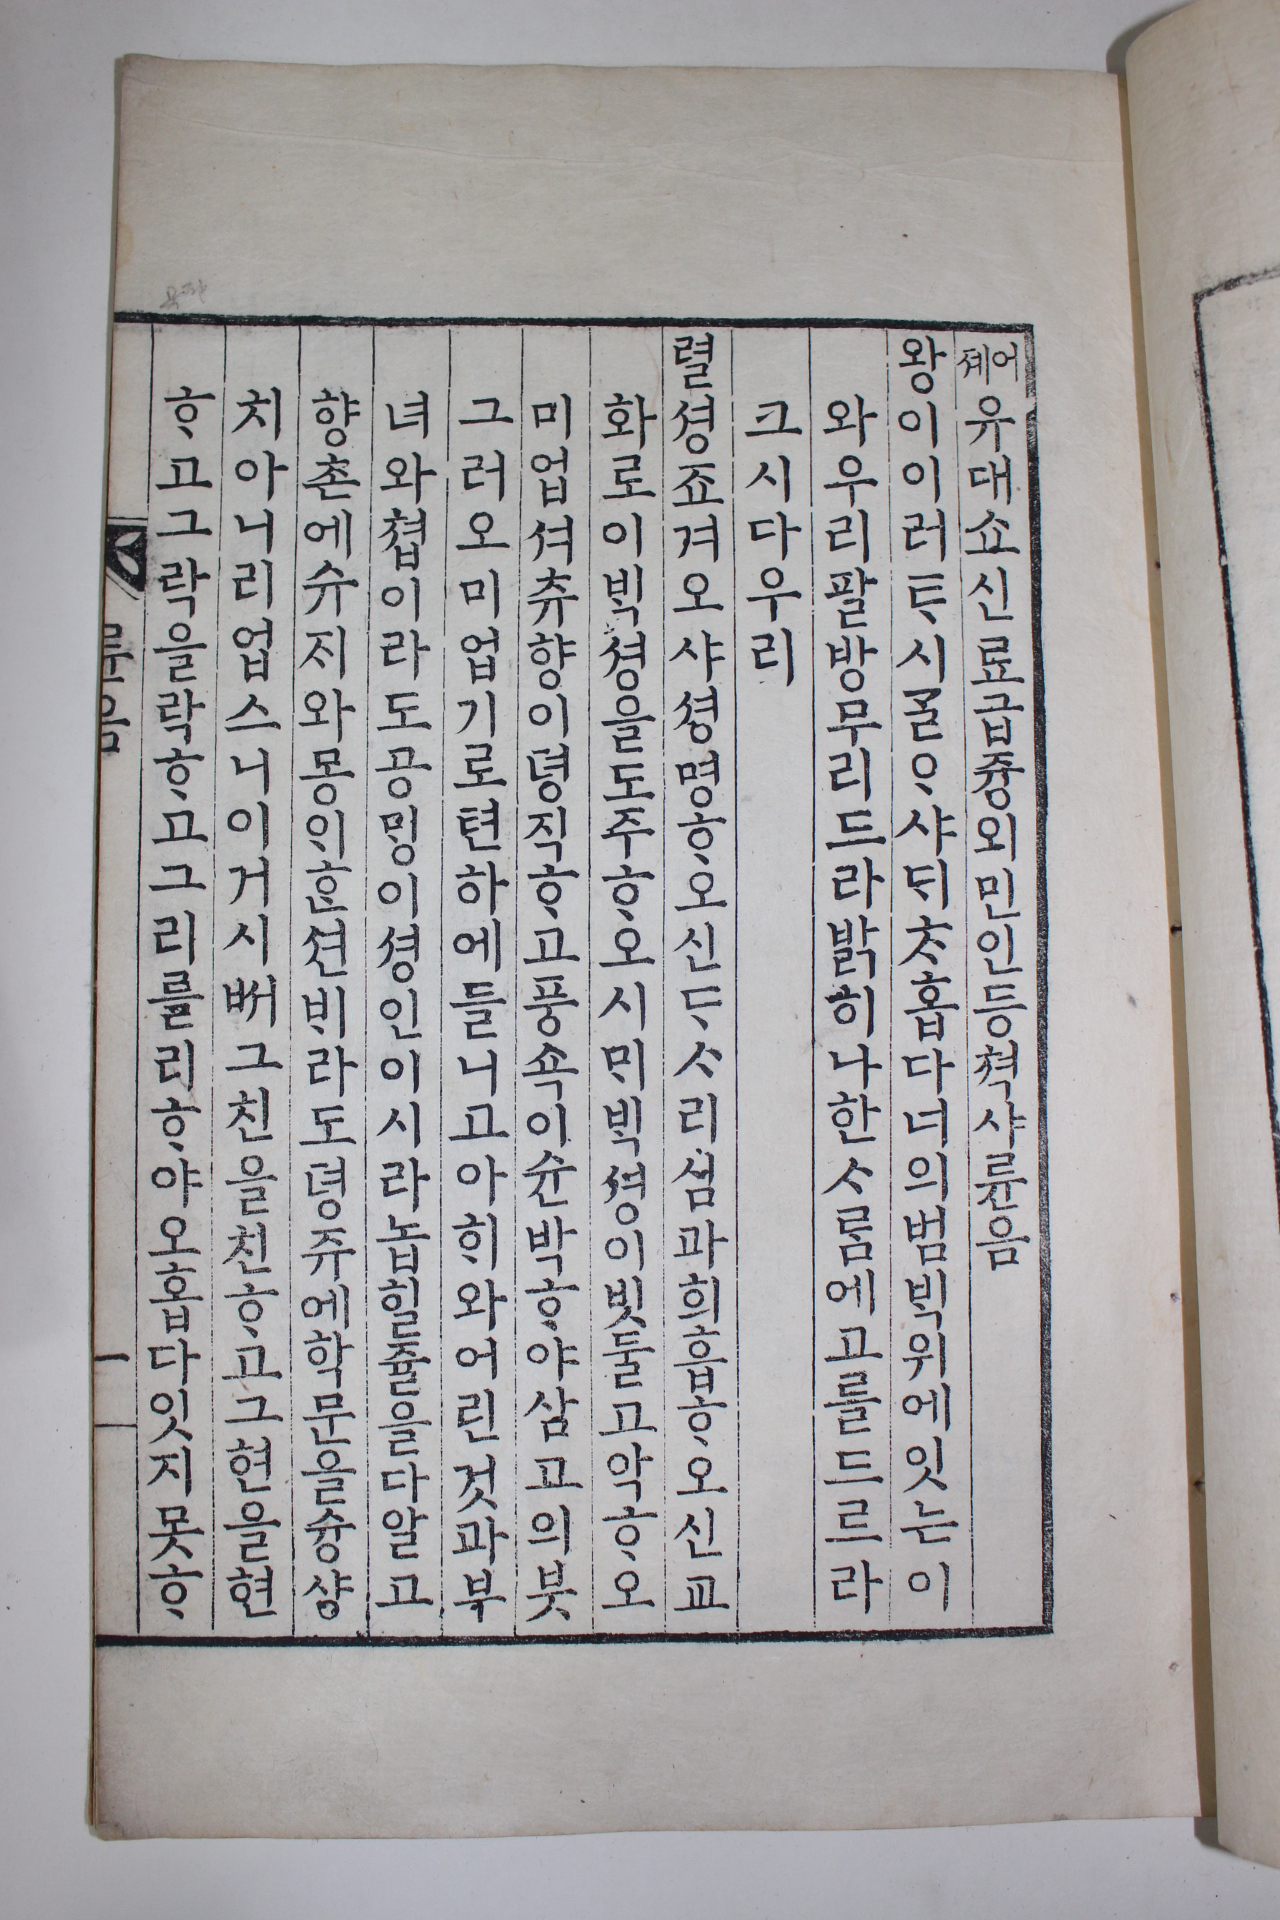 어졔유대쇼신료급즁외민인등쳑샤륜음
왕이이러ᄐᆞ시ᄀᆞᆯᄋᆞ샤ᄃᆡᄎᆞ홉다너의범ᄇᆡᆨ위에잇는이
와우리팔방무리드라밝히나한ᄉᆞ롬에고를드르라
크시다우리
렬셩죠겨오샤셩명ᄒᆞ오신ᄃᆞᄉᆞ리심과희흡ᄒᆞ오신교
화로이ᄇᆡᆨ셩을도주ᄒᆞ오시ᄆᆡᄇᆡᆨ셩이빗둘고악ᄒᆞ오
미업셔츄향이뎡직ᄒᆞ고풍쇽이슌박ᄒᆞ야삼고의붓
그러오미업기로텬하에들니고아ᄒᆡ와어린것과부
녀와쳡이라도공ᄆᆡᆼ이셩인이시라놉힐줄을다알고
향촌에슈지와몽ᄋᆡᄒᆞᆫ션ᄇᆡ라도뎡쥬에학문을슝샹
치아니리업스니이거시ᄡᅥ그친을친ᄒᆞ고그현을현
ᄒᆞ고그락을락ᄒᆞ고그리를리ᄒᆞ야오홉다잇지못ᄒᆞ
륜음
一